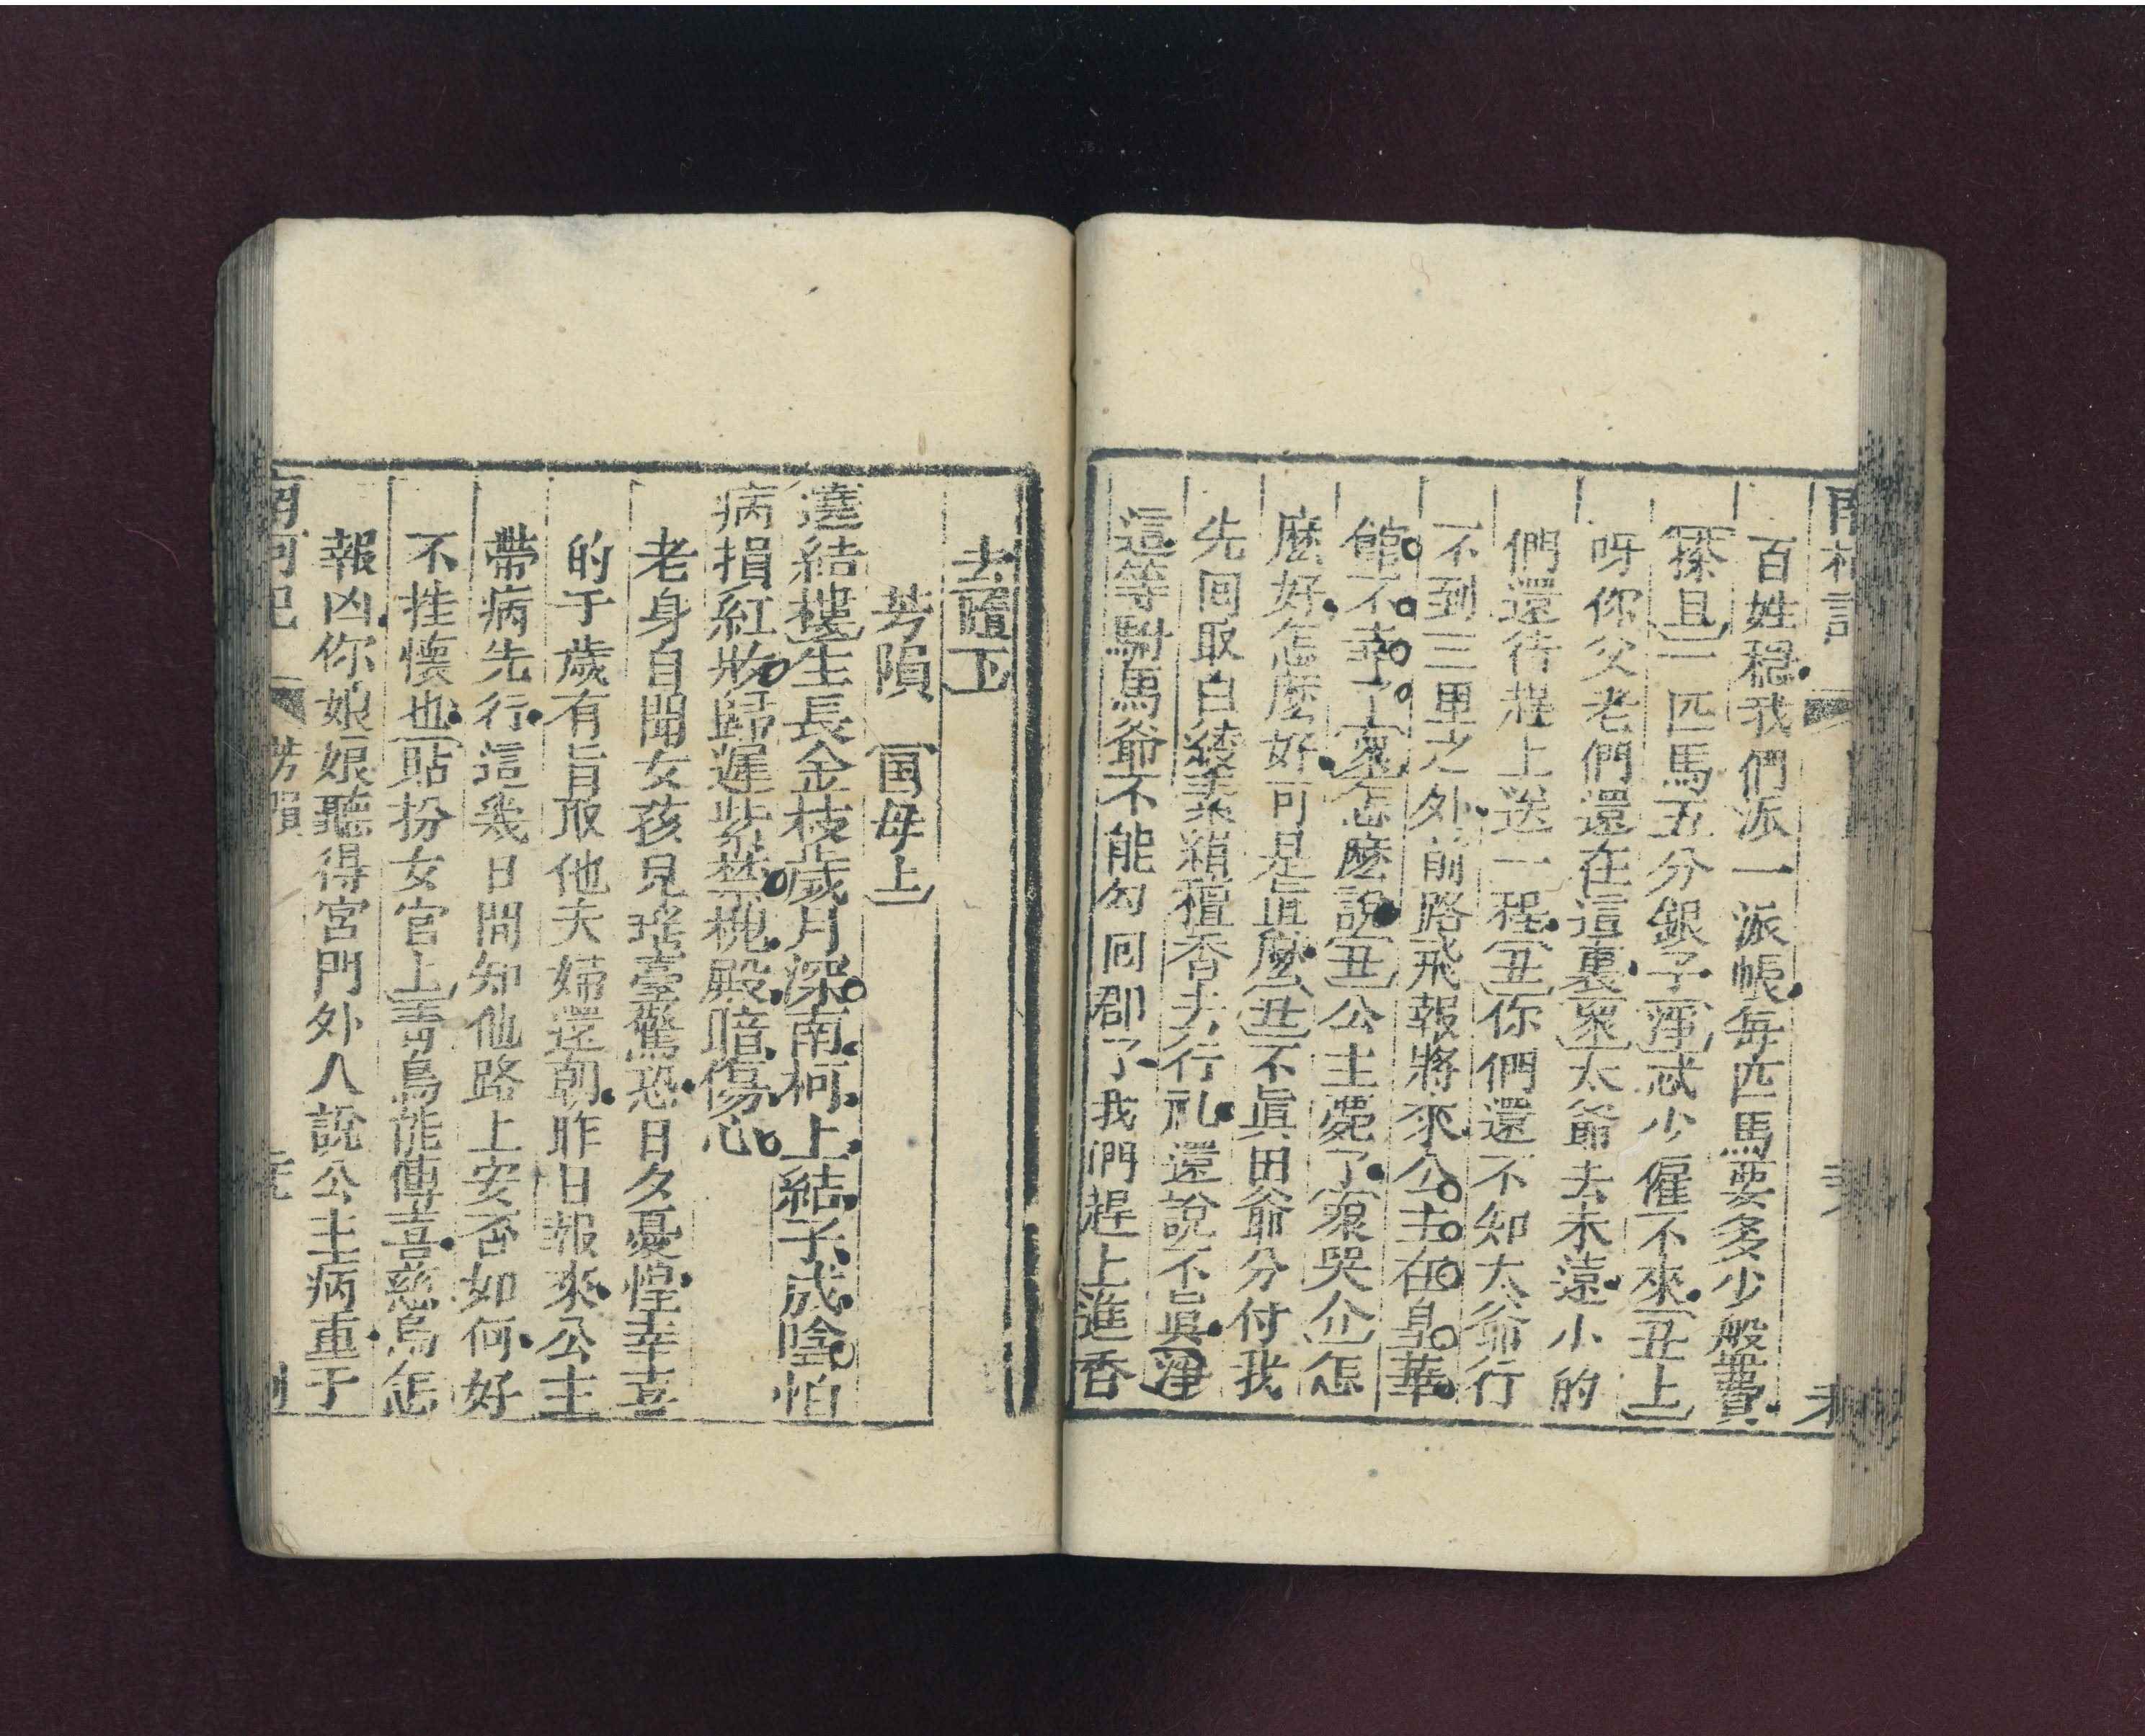 南柯記
百姓穩我們派一派帳每匹馬要多少般費
𢱢且一匹馬五分銀子淨忒少雇不來丑上
呀你父老們還在這裏衆太爺去未遠小的
們還待趕上送一程丑你們還不知太爺行
不到三里之外前路飛報將來公主在皇華
館不幸了衆怎麽說丑公主薨了衆哭介怎
麽好怎麽好可是眞麽丑不眞田爺分付我
先囘取白綾素絹檀香去行礼還說不眞淨
這等駙馬爺不能勾囘郡了我們趕上進香
去隨下
芳隕 国母上
遶結樓生長金枝歲月深南柯上結子成陰怕
病損紅妝歸遲紫禁槐殿暗傷心
老身自聞女孩兒瑤臺驚恐日久憂惶幸喜
的于歲有旨取他夫婦還朝昨日報來公主
帶病先行這幾日間知他路上安否如何好
不挂懷也貼扮女官上青鳥能傳喜慈烏怎
報凶你娘娘聽得宮門外人說公主病重于
南柯記 芳隕